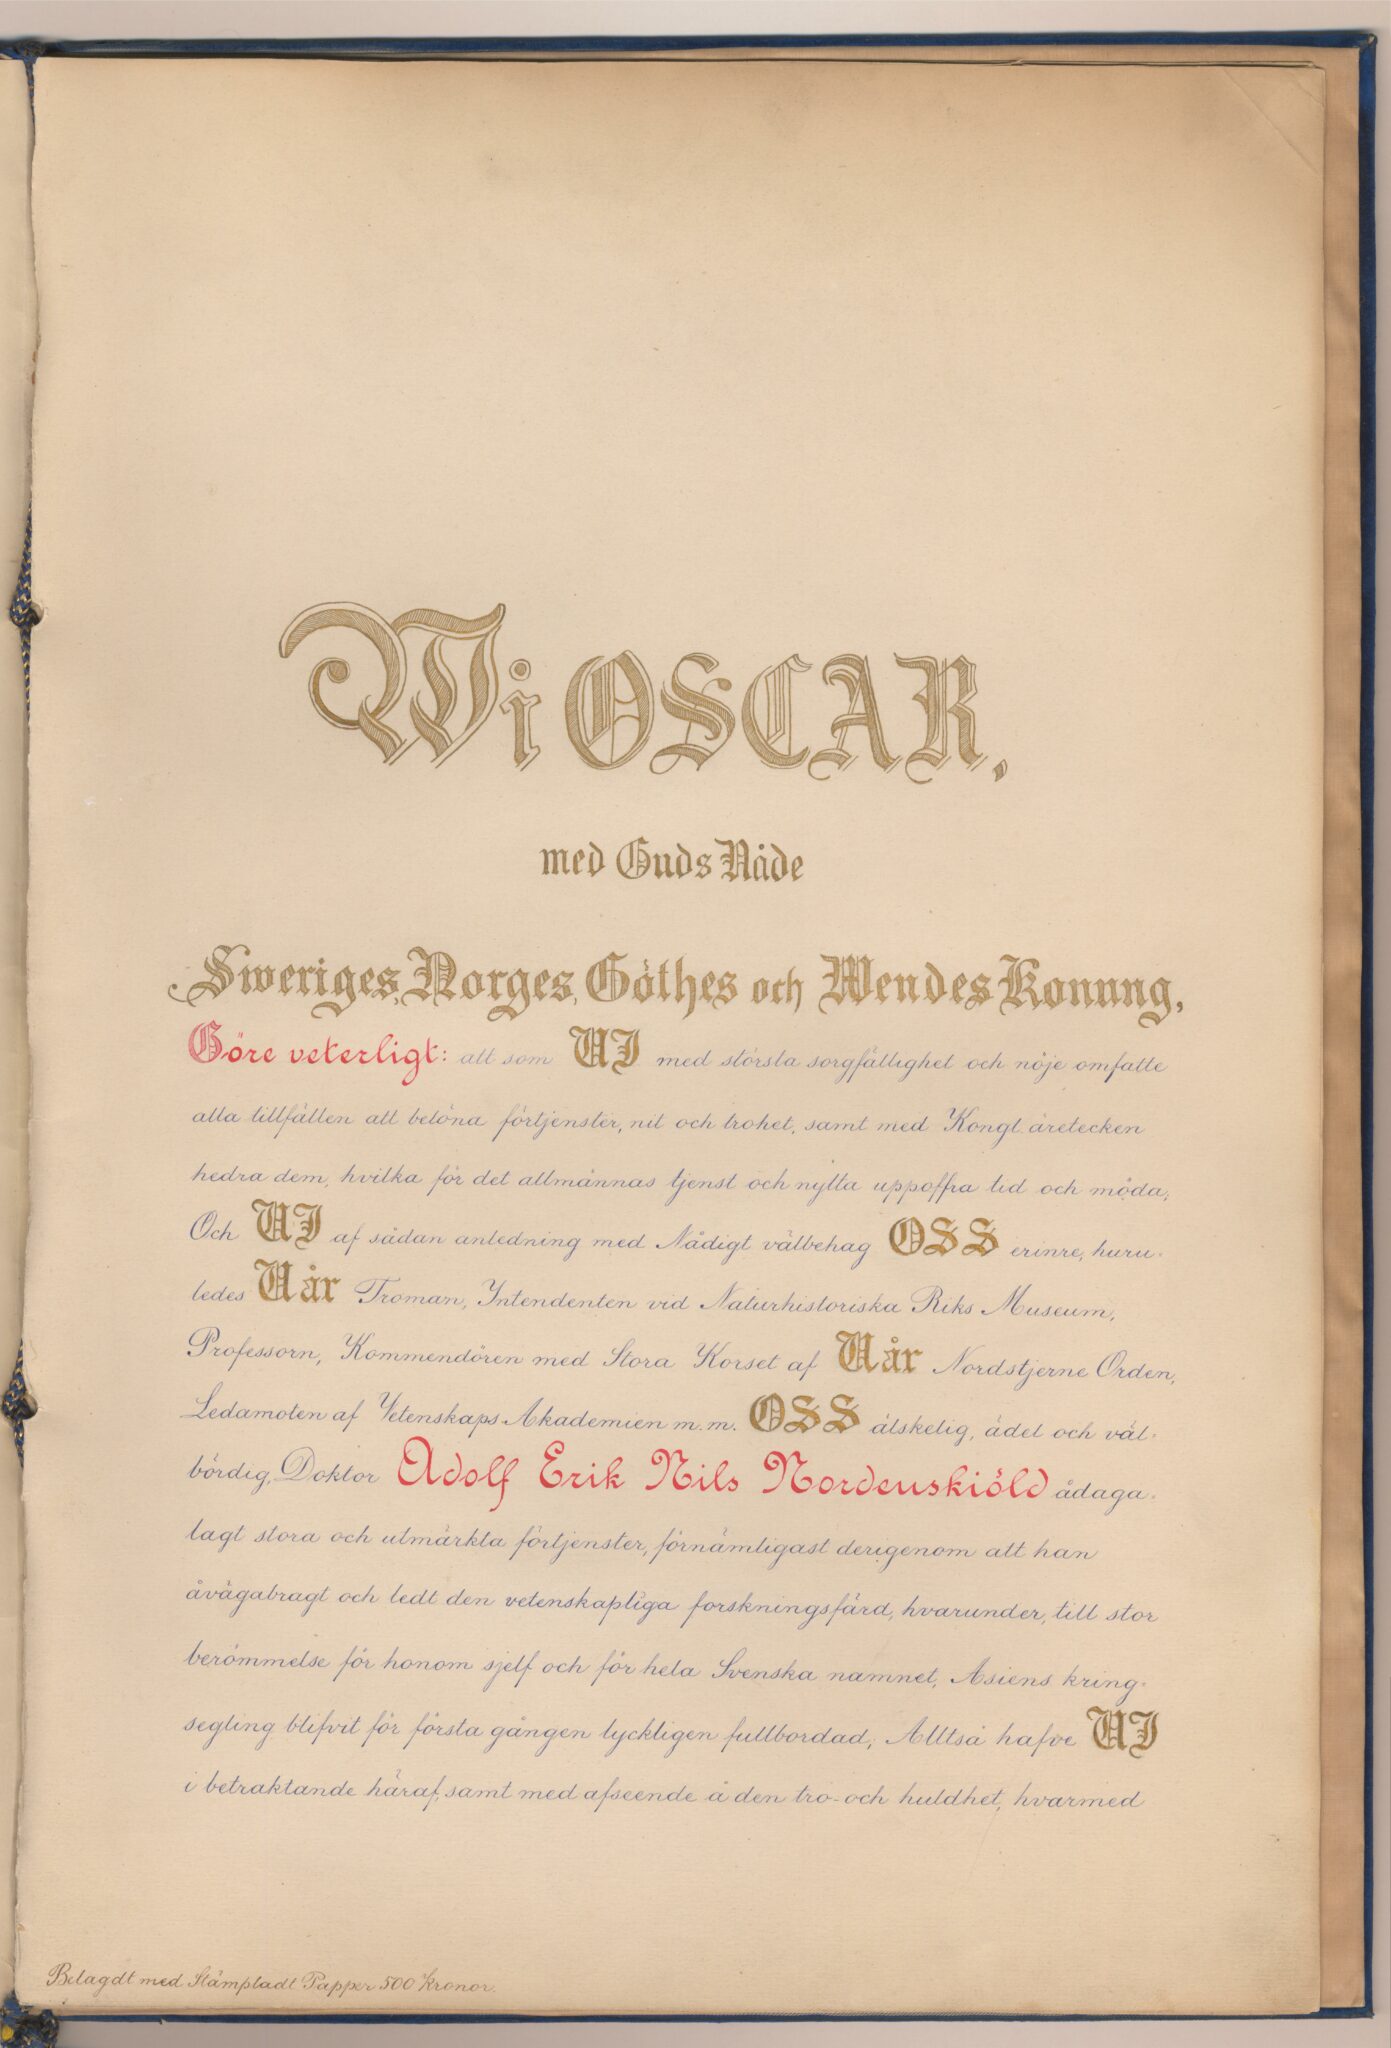 Wi OSCAR,
med Guds Nåde
Sweriges, Norges, Göthes och Wendes Konung,
Göre veterligt: att som WI med största sorgfällighet och nöje omfatte
alla tillfällen att belöna förtjenster, nit och trohet, samt med Kongl. äretecken
hedra dem, hvilka för det allmännas tjenst och nytta uppoffra tid och möda;
Och WI af sådan anledning med Nådigt välbehag OSS erinre, huru-
ledes Wår Troman, Intendenten vid Naturhistoriska Riks Museum,
Professorn, Kommendören med Stora Korset af Wår Nordstjerne Orden,
Ledamoten af Vetenskaps-Akademien m.m. OSS älskelig, ädel och väl-
bördig, Doktor Adolf Erik Nils Nordenskiöld ådaga-
lagt stora och utmärkta förtjenster, förnämligast derigenom att han
åvägabragt och ledt den vetenskapliga forskningsfärd, hvarunder, till stor
berömmelse för honom sjelf och för hela Svenska namnet, Asiens kring-
segling blifvit för första gången lyckligen fullbordad; Alltså hafve WI
i betraktande häraf, samt med afseende å den tro- och huldhet, hvarmed
Belagdt med Stämpladt Papper 500 kronor.